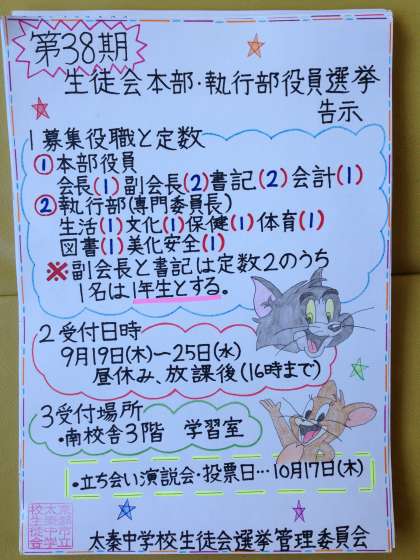 第38期
生徒会本部・執行部役員選挙
告示
1 募集役職と定数
① 本部役員
会長(1) 副会長(2) 書記(2) 会計(1)
② 執行部(専門委員長)
生活(1) 文化(1) 保健(1) 体育(1)
図書(1) 美化安全(1)
※副会長と書記は定数2のうち
1名は1年生とする。
2 受付日時
9月19日(木)~25日(水)
昼休み、放課後(16時まで)
3 受付場所
・南校舎3階 学習室
・立ち会い演説会・投票日…10月17日(木)
太秦中学校生徒会選挙管理委員会